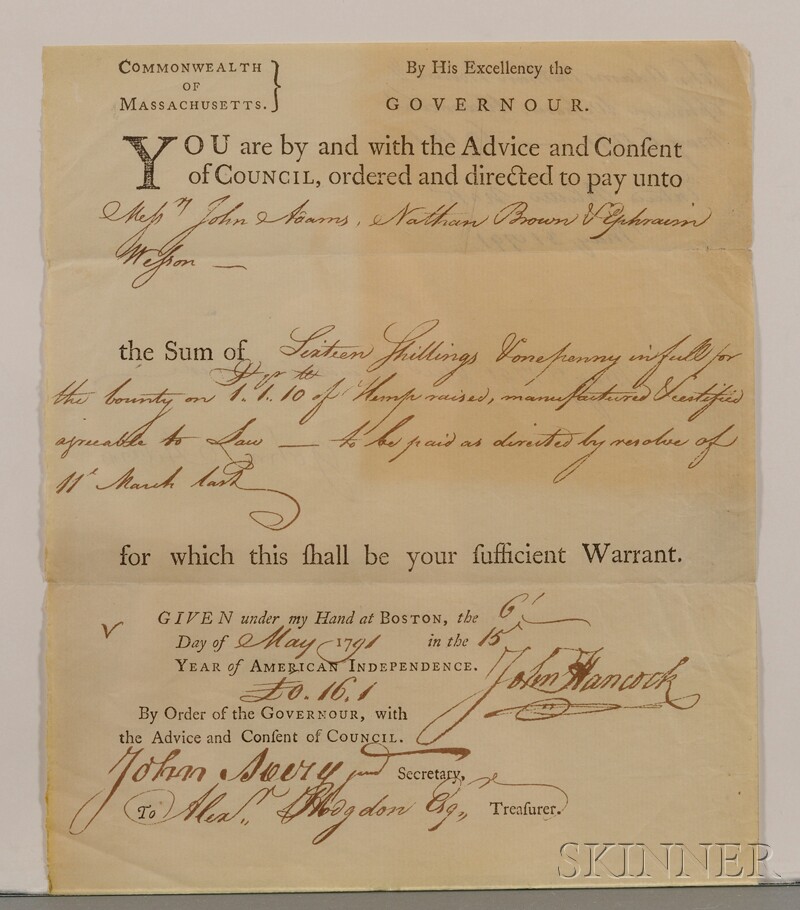 COMMONWEALTH
OF
MASSACHUSETTS. }
By His Excellency the
GOVERNOUR.
YOU are by and with the Advice and Conſent
of COUNCIL, ordered and directed to pay unto
Meſsrs John Adams, Nathan Brown & Ephraim
Weſson —
the Sum of Sixteen Shillings & one penny in full for
the bounty on 1.1.10 of Hemp raised, manufactured & certified
agreeable to Law — to be paid as directed by resolve of
11th March last
for which this ſhall be your ſufficient Warrant.
GIVEN under my Hand at BOSTON, the 6th
Day of May 1791 in the 15th
YEAR of AMERICAN INDEPENDENCE.
£0.16.1
John Hancock
By Order of the GOVERNOUR, with
the Advice and Conſent of COUNCIL.
John Avery jun Secretary,
To Alexr Hodgdon Esqr, Treaſurer.
SKINNER